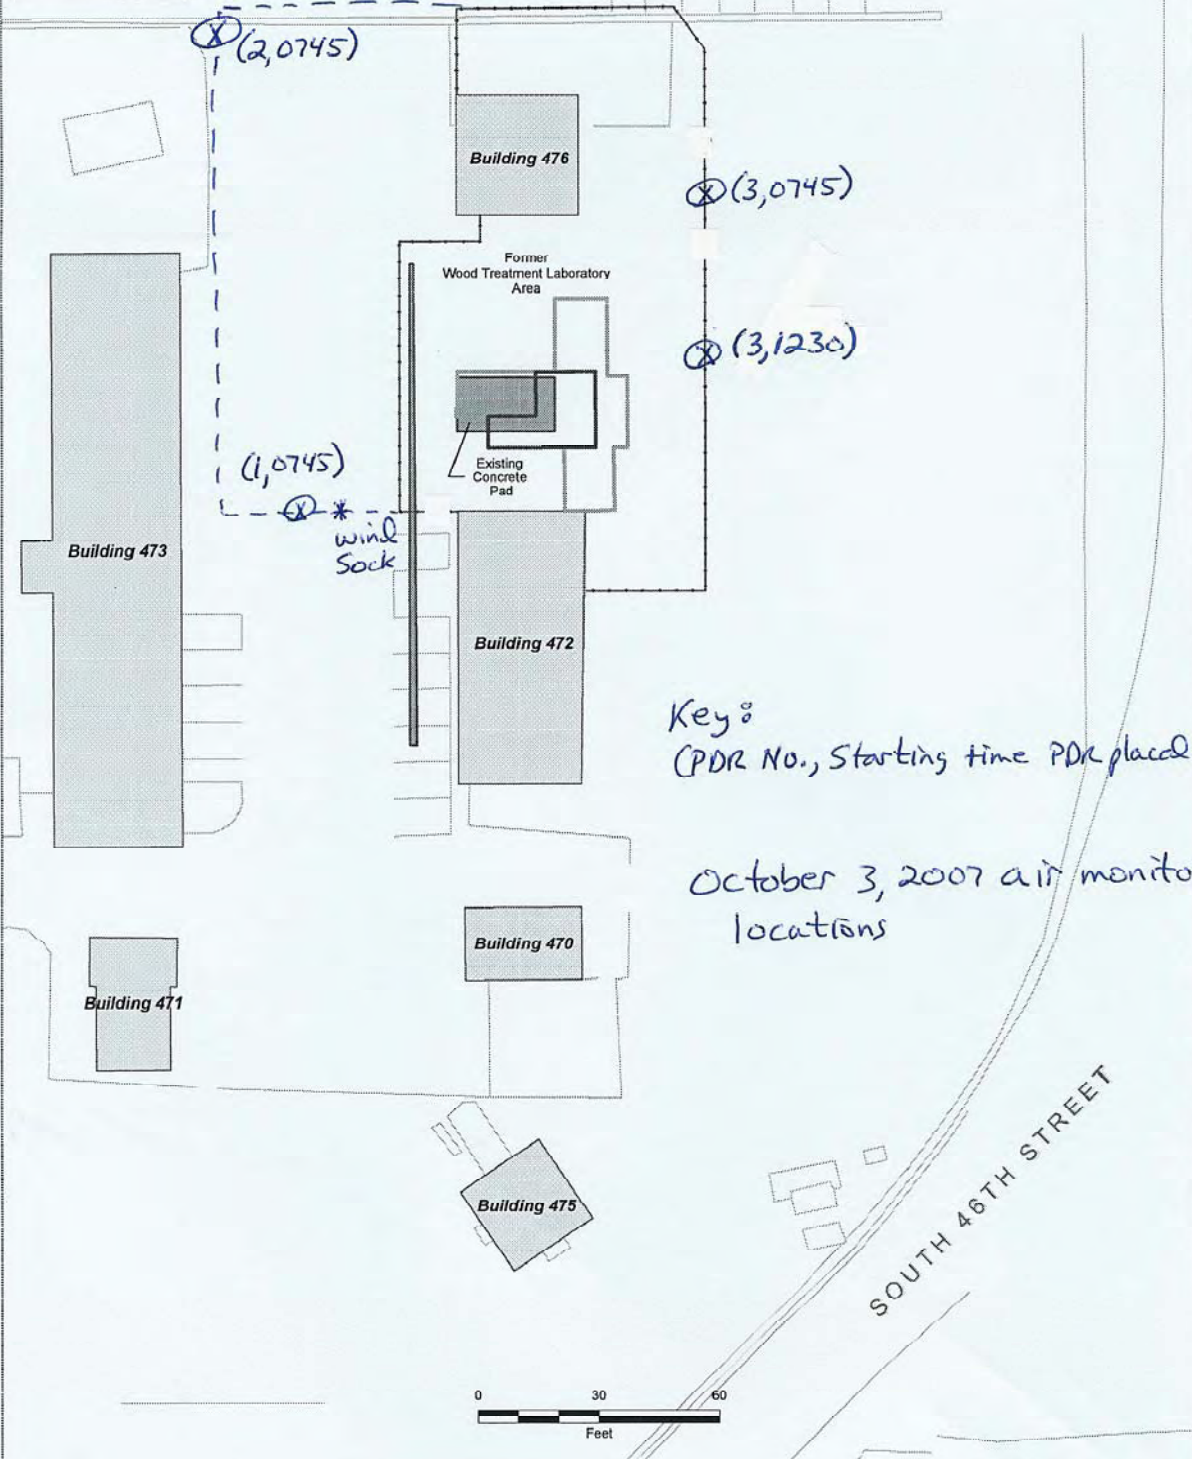 (2,0745)
Building 476
(3,0745)
Former
Wood Treatment Laboratory
Area
(3,1230)
(1,0745)
Existing
Concrete
Pad
wind
Sock
Building 473
Building 472
Key:
(PDR No., Starting time PDR placed
October 3, 2007 air monito
locations
Building 470
Building 471
Building 475
SOUTH 46TH STREET
0 30 60
Feet